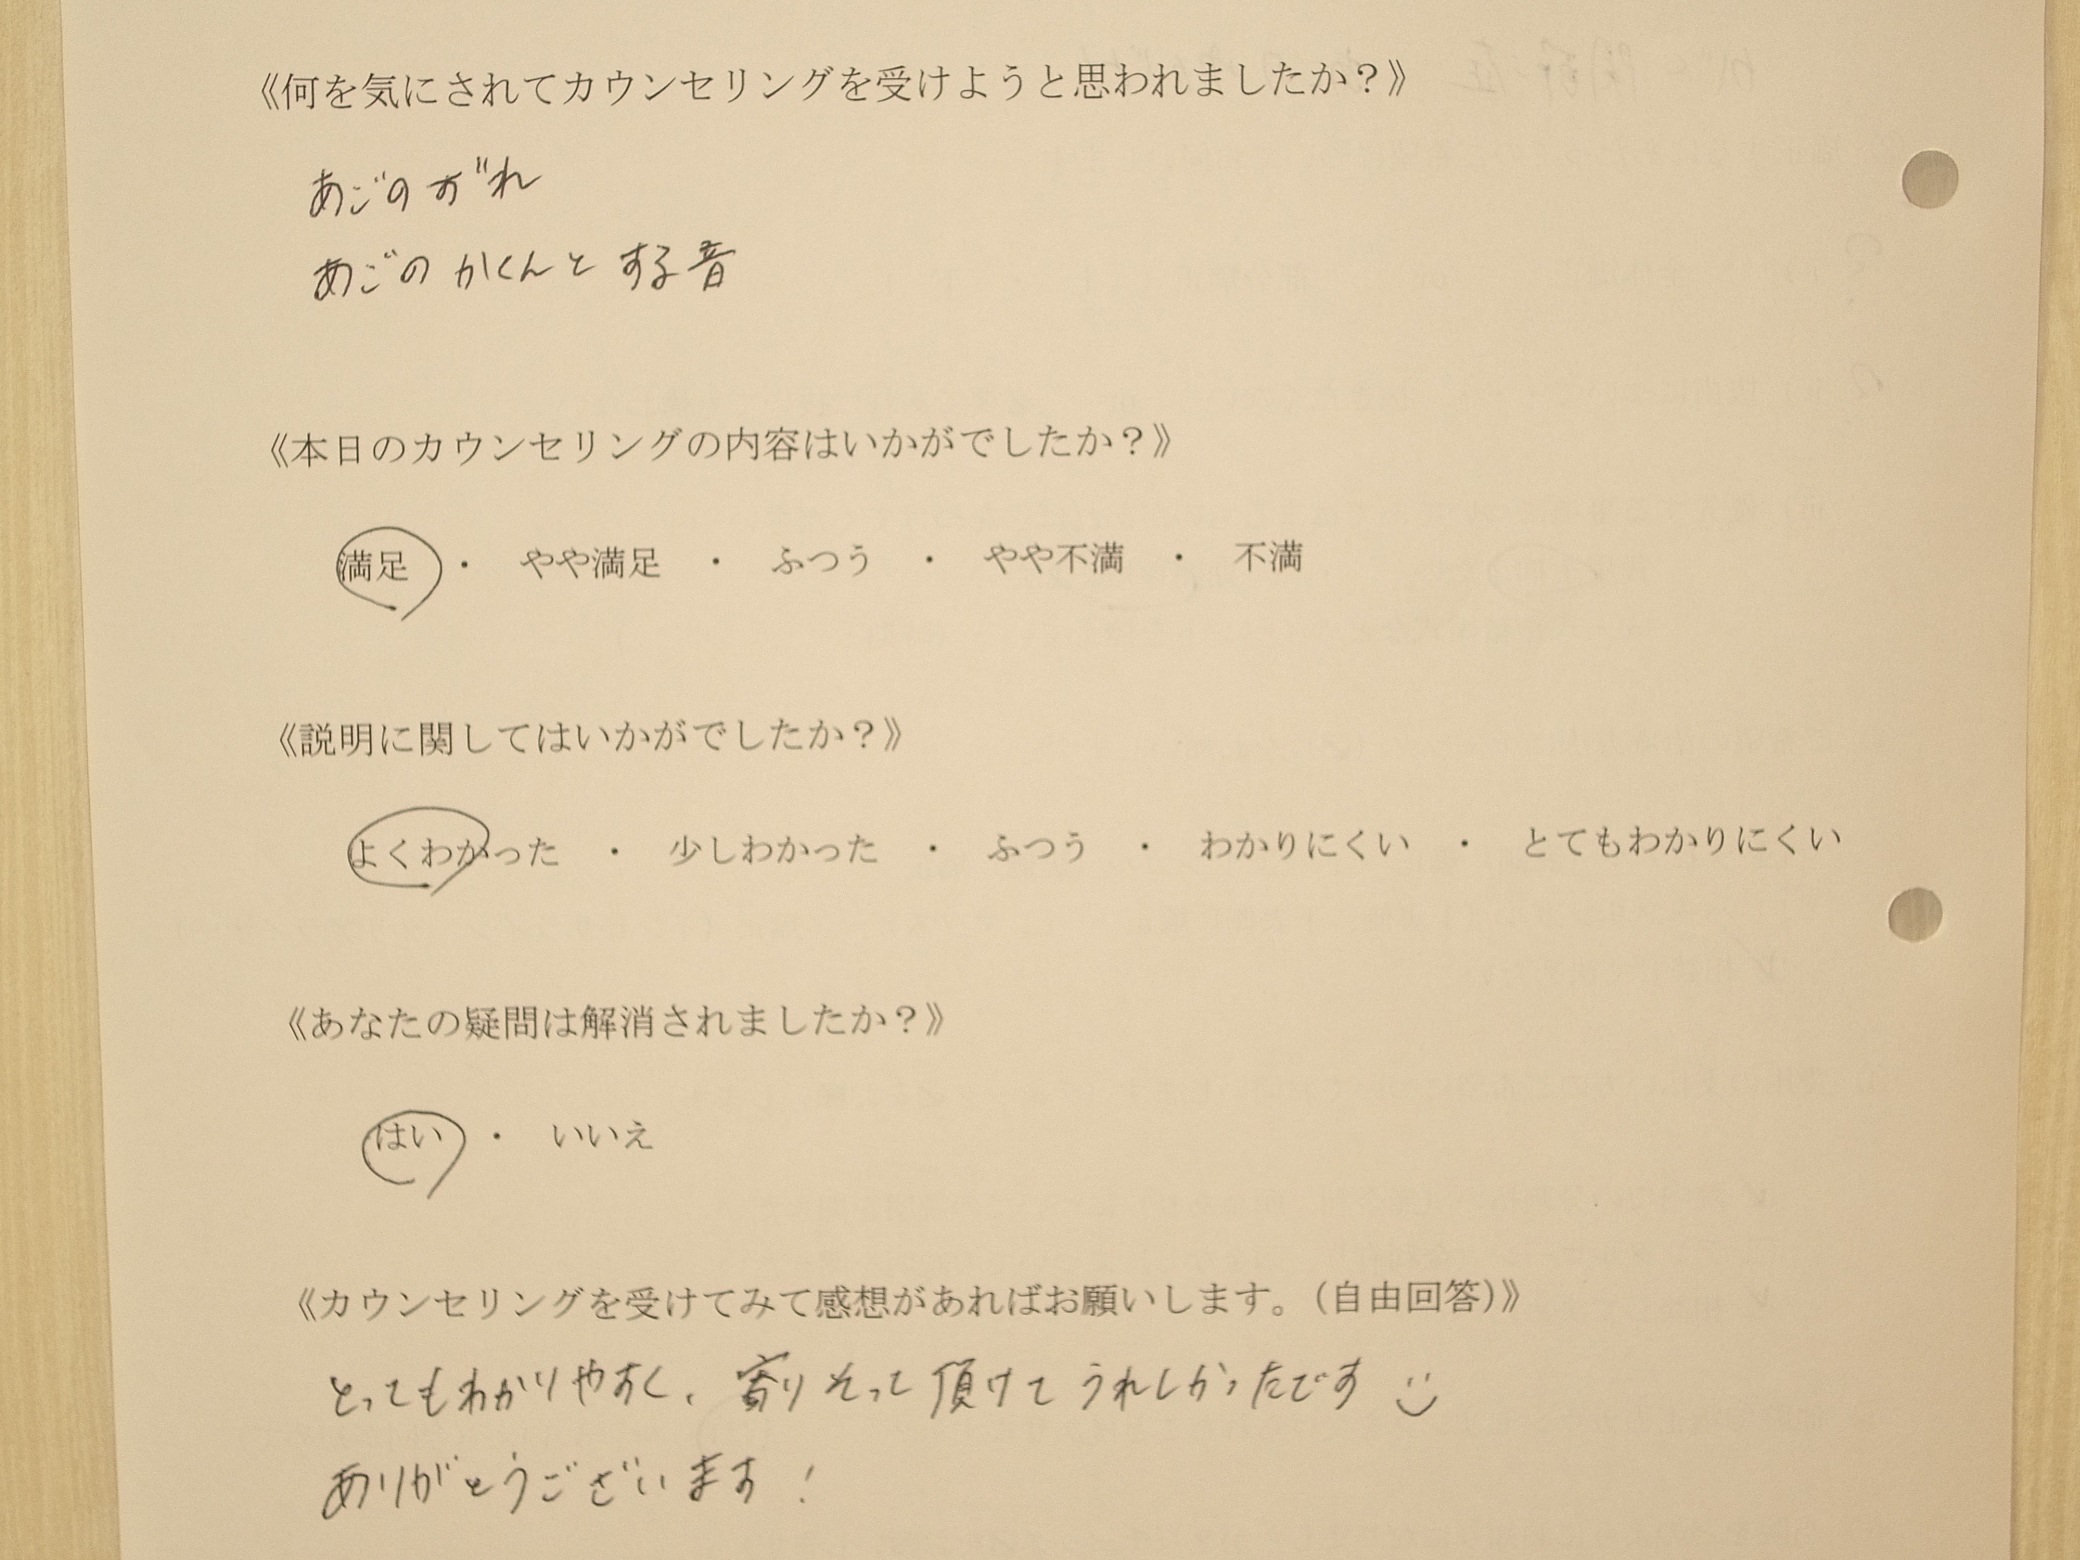 《何を気にされてカウンセリングを受けようと思われましたか？》
あごのずれ
あごのかくんとする音
《本日のカウンセリングの内容はいかがでしたか？》
満足 ・ やや満足 ・ ふつう ・ やや不満 ・ 不満
《説明に関してはいかがでしたか？》
よくわかった ・ 少しわかった ・ ふつう ・ わかりにくい ・ とてもわかりにくい
《あなたの疑問は解消されましたか？》
はい ・ いいえ
《カウンセリングを受けてみて感想があればお願いします。（自由回答）》
とってもわかりやすく、寄りそって頂けてうれしかったです
ありがとうございます！